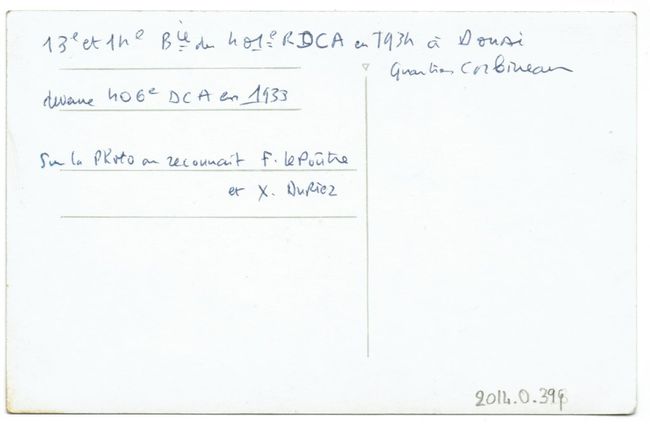 13e et 14e Bie du 401e RDCA en 1934 à Douai
Quartier Corbineau
devenu 406e DCA en 1933
Sur la Photo on reconnait F. lePoûtre
et X. DuRiez
2014.0.398